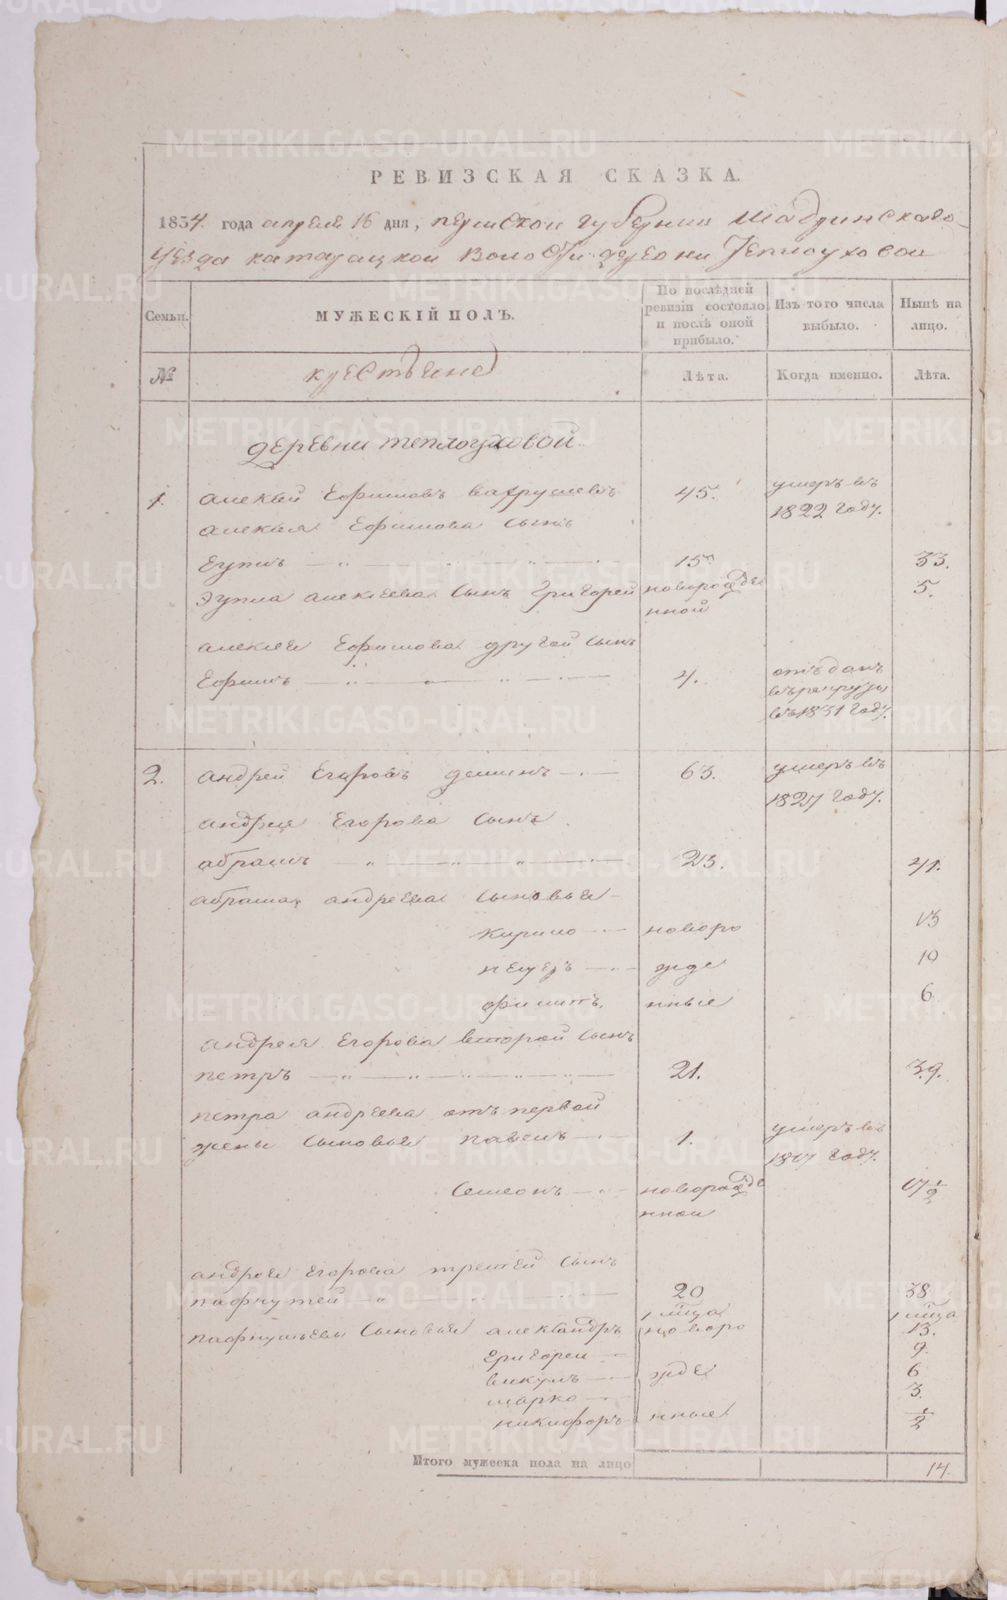 РЕВИЗСКАЯ СКАЗКА.
1834. года апреля 16 дня, пермской губернии шадринскаго
уезда катайцкой волости деревни теплоуховой
Семьи.
МУЖЕСКІЙ ПОЛЪ.
По послѣдней ревизіи состояло и послѣ оной прибыло.
Изъ того числа выбыло.
Нынѣ на лицо.
№
крестьяне
Лѣта.
Когда именно.
Лѣта.
деревни теплоуховой.
1. алексѣй Ефимовъ вахрушевъ 45. умеръ въ
1822 году.
алексея Ефимова сынъ
Еуплъ 15 33.
Эупла алексеева сынъ григорей новорожде 5.
нной
алексея Ефимова другой сынъ
Ефимъ 4. отъданъ
въ рекруты
въ 1831 году.
2. андрей Егоровъ деминъ 63. умеръ въ
1827 году.
андрея Егорова сынъ
абрамъ 23. 41.
абрама андреева сыновья
кирило новоро 13
петръ жде 10
филипъ нные 6
андрея Егорова второй сынъ
петръ 21. 39.
петра андреева отъ первой
жены сыновья павелъ 1. умеръ въ
1817 году.
Семенъ новорожде 17 1/2
нной
андрея егорова третей сынъ
пафнутей 20 38
пафнутьевы сыновья александръ новоро 13.
григореи 9.
викулъ жде 6
марко 3.
никифоръ нные 1/2
Итого мужеска пола на лицо 14.
METRIKI.GASO-URAL.RU